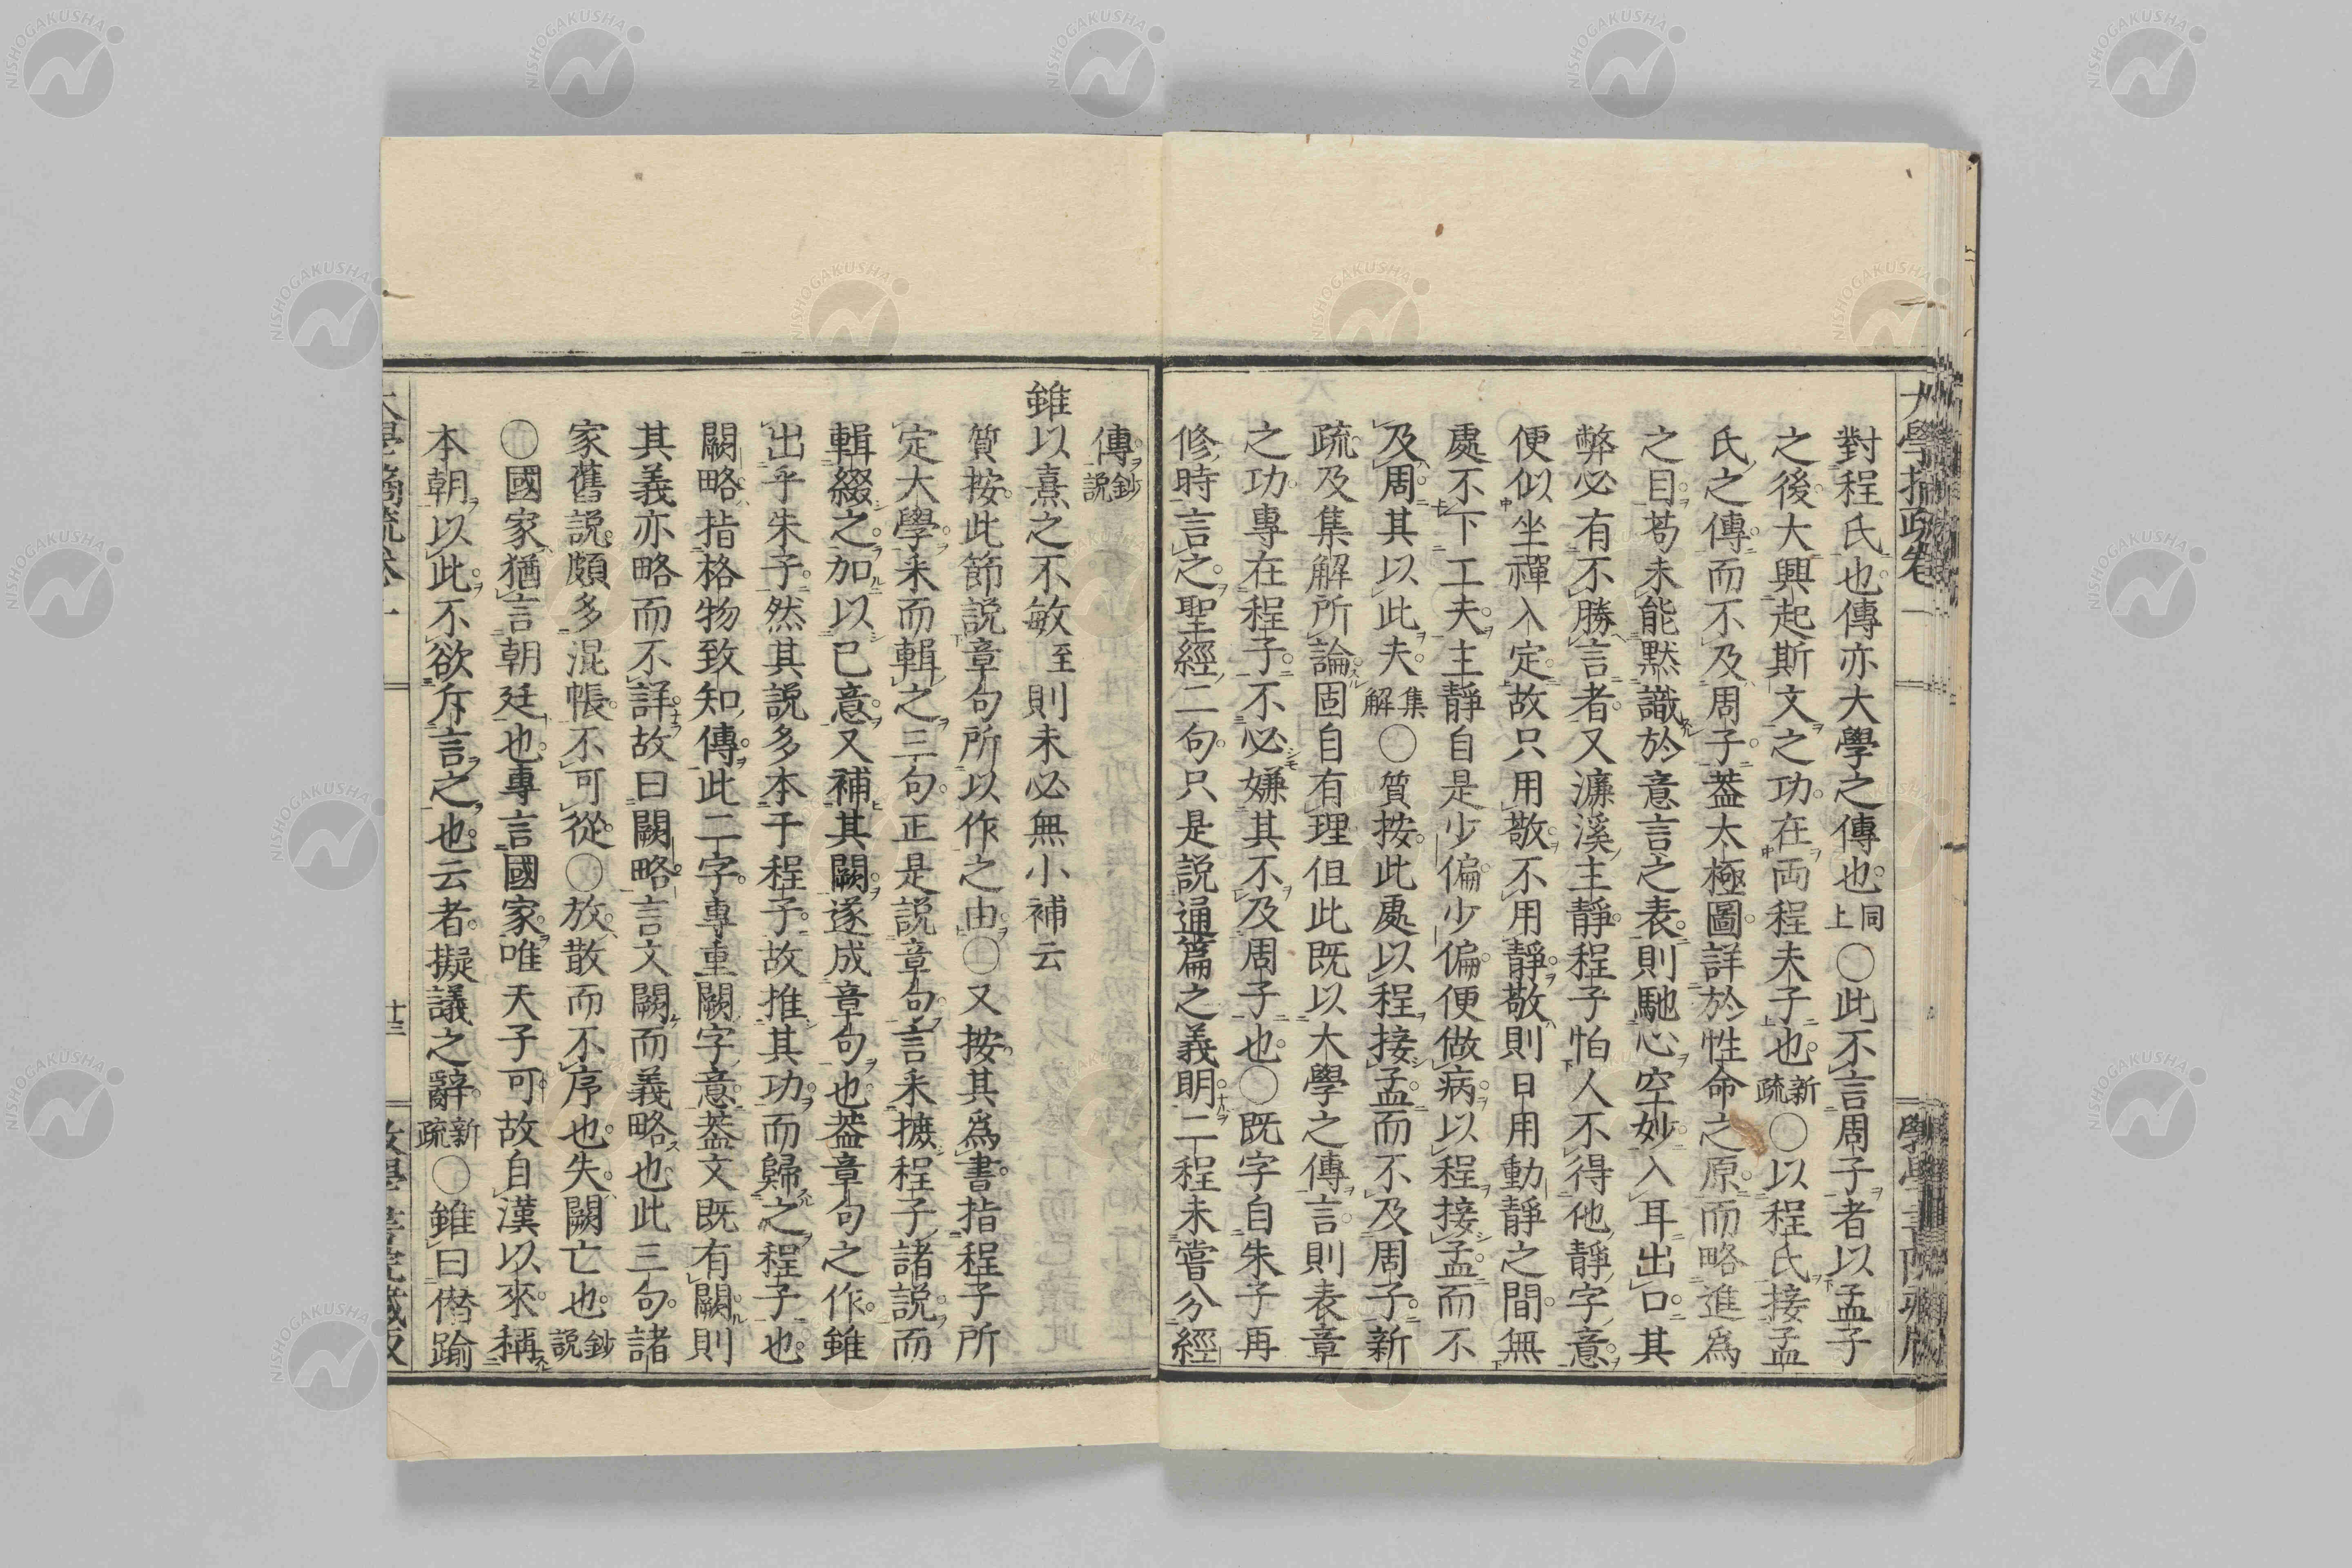 對程氏也傳亦大學之傳也同上〇此不言周子者以孟子
之後大興起斯文之功在両程夫子也新疏〇以程氏接孟
氏之傳而不及周子葢太極圖詳於性命之原而略進爲
之目苟未能黙識於意言之表則馳心空妙入耳出口其
弊必有不勝言者又濂溪主靜程子怕人不得他靜字意
便似坐禪入定故只用敬不用靜敬則日用動靜之間無
處不下工夫主靜自是少偏少偏便做病以程接孟而不
及周其以此夫集解〇質按此處以程接孟而不及周子新
疏及集解所論固自有理但此既以大學之傳言則表章
之功專在程子不必嫌其不及周子也〇既字自朱子再
修時言之聖經二句只是説通篇之義明二程未嘗分經
傳鈔説
雖以熹之不敏至則未必無小補云
質按此節説章句所以作之由〇又按其爲書指程子所
定大學来而輯之三句正是説章句言来摭程子諸説而
輯綴之加以己意又補其闕遂成章句也葢章句之作雖
出乎朱子然其説多本于程子故推其功而歸之程子也
闕略指格物致知傳此二字專重闕字意葢文既有闕則
其義亦略而不詳故曰闕略言文闕而義略也此三句諸
家舊説頗多混帳不可從〇放散而不序也失闕亡也鈔説
〇國家猶言朝廷也專言國家唯天子可故自漢以來稱
本朝以此不欲斥言之也云者擬議之辭新疏〇雖曰僭踰